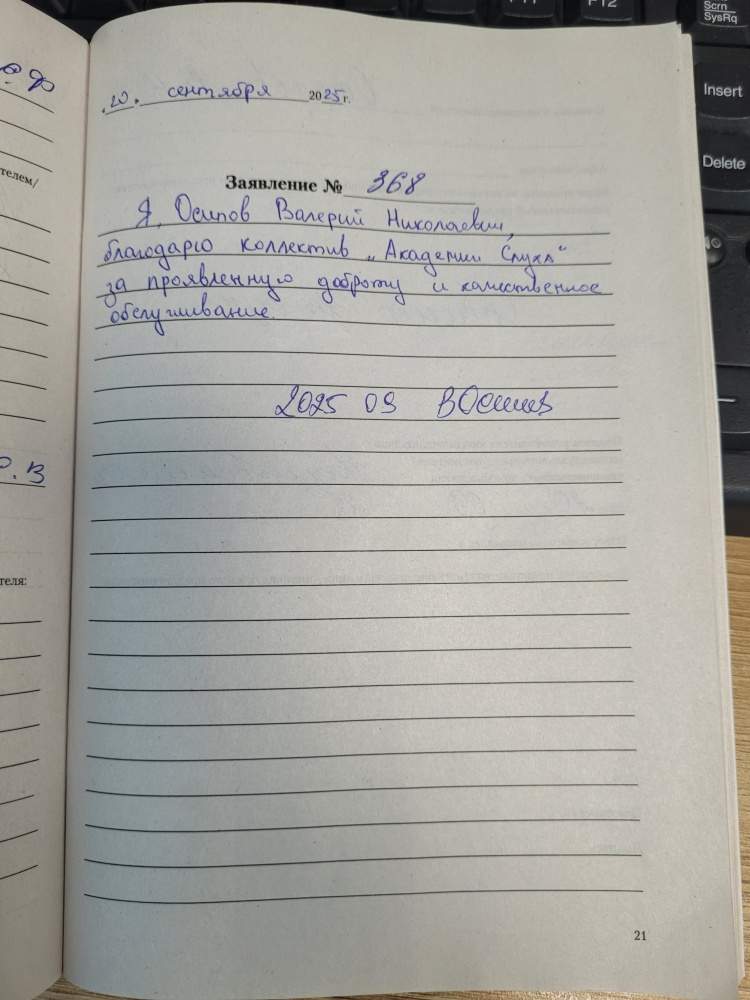 20. сентября 2025 г.
Заявление № 368
Я, Осипов Валерий Николаевич,
благодарю коллектив „Академии Слуха“
за проявленную доброту и качественное
обслуживание.
2025 09 ВОсипов
21
телем/
р. в
теля:
Scrn
SysRq
Insert
Delete
F12